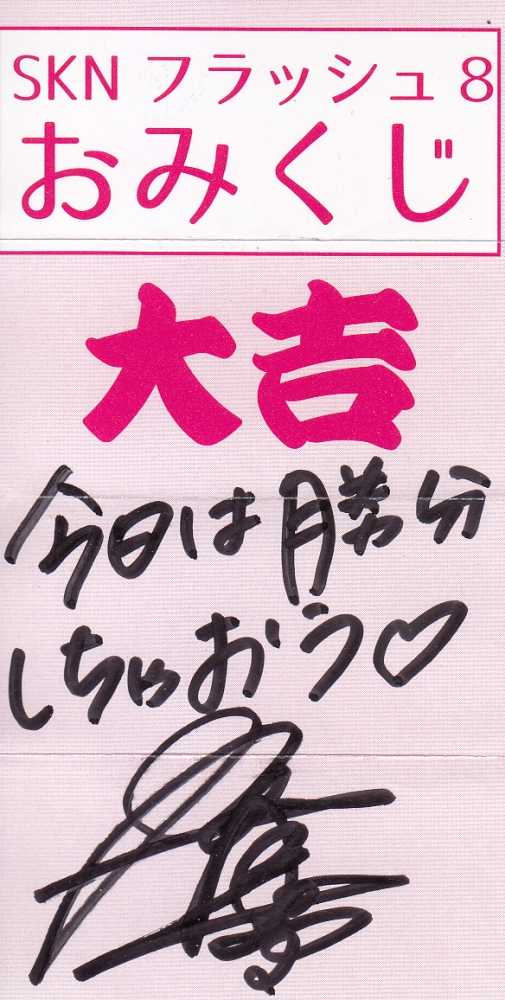 SKN フラッシュ 8
おみくじ
大吉
今日は勝分
しちゃおう♡